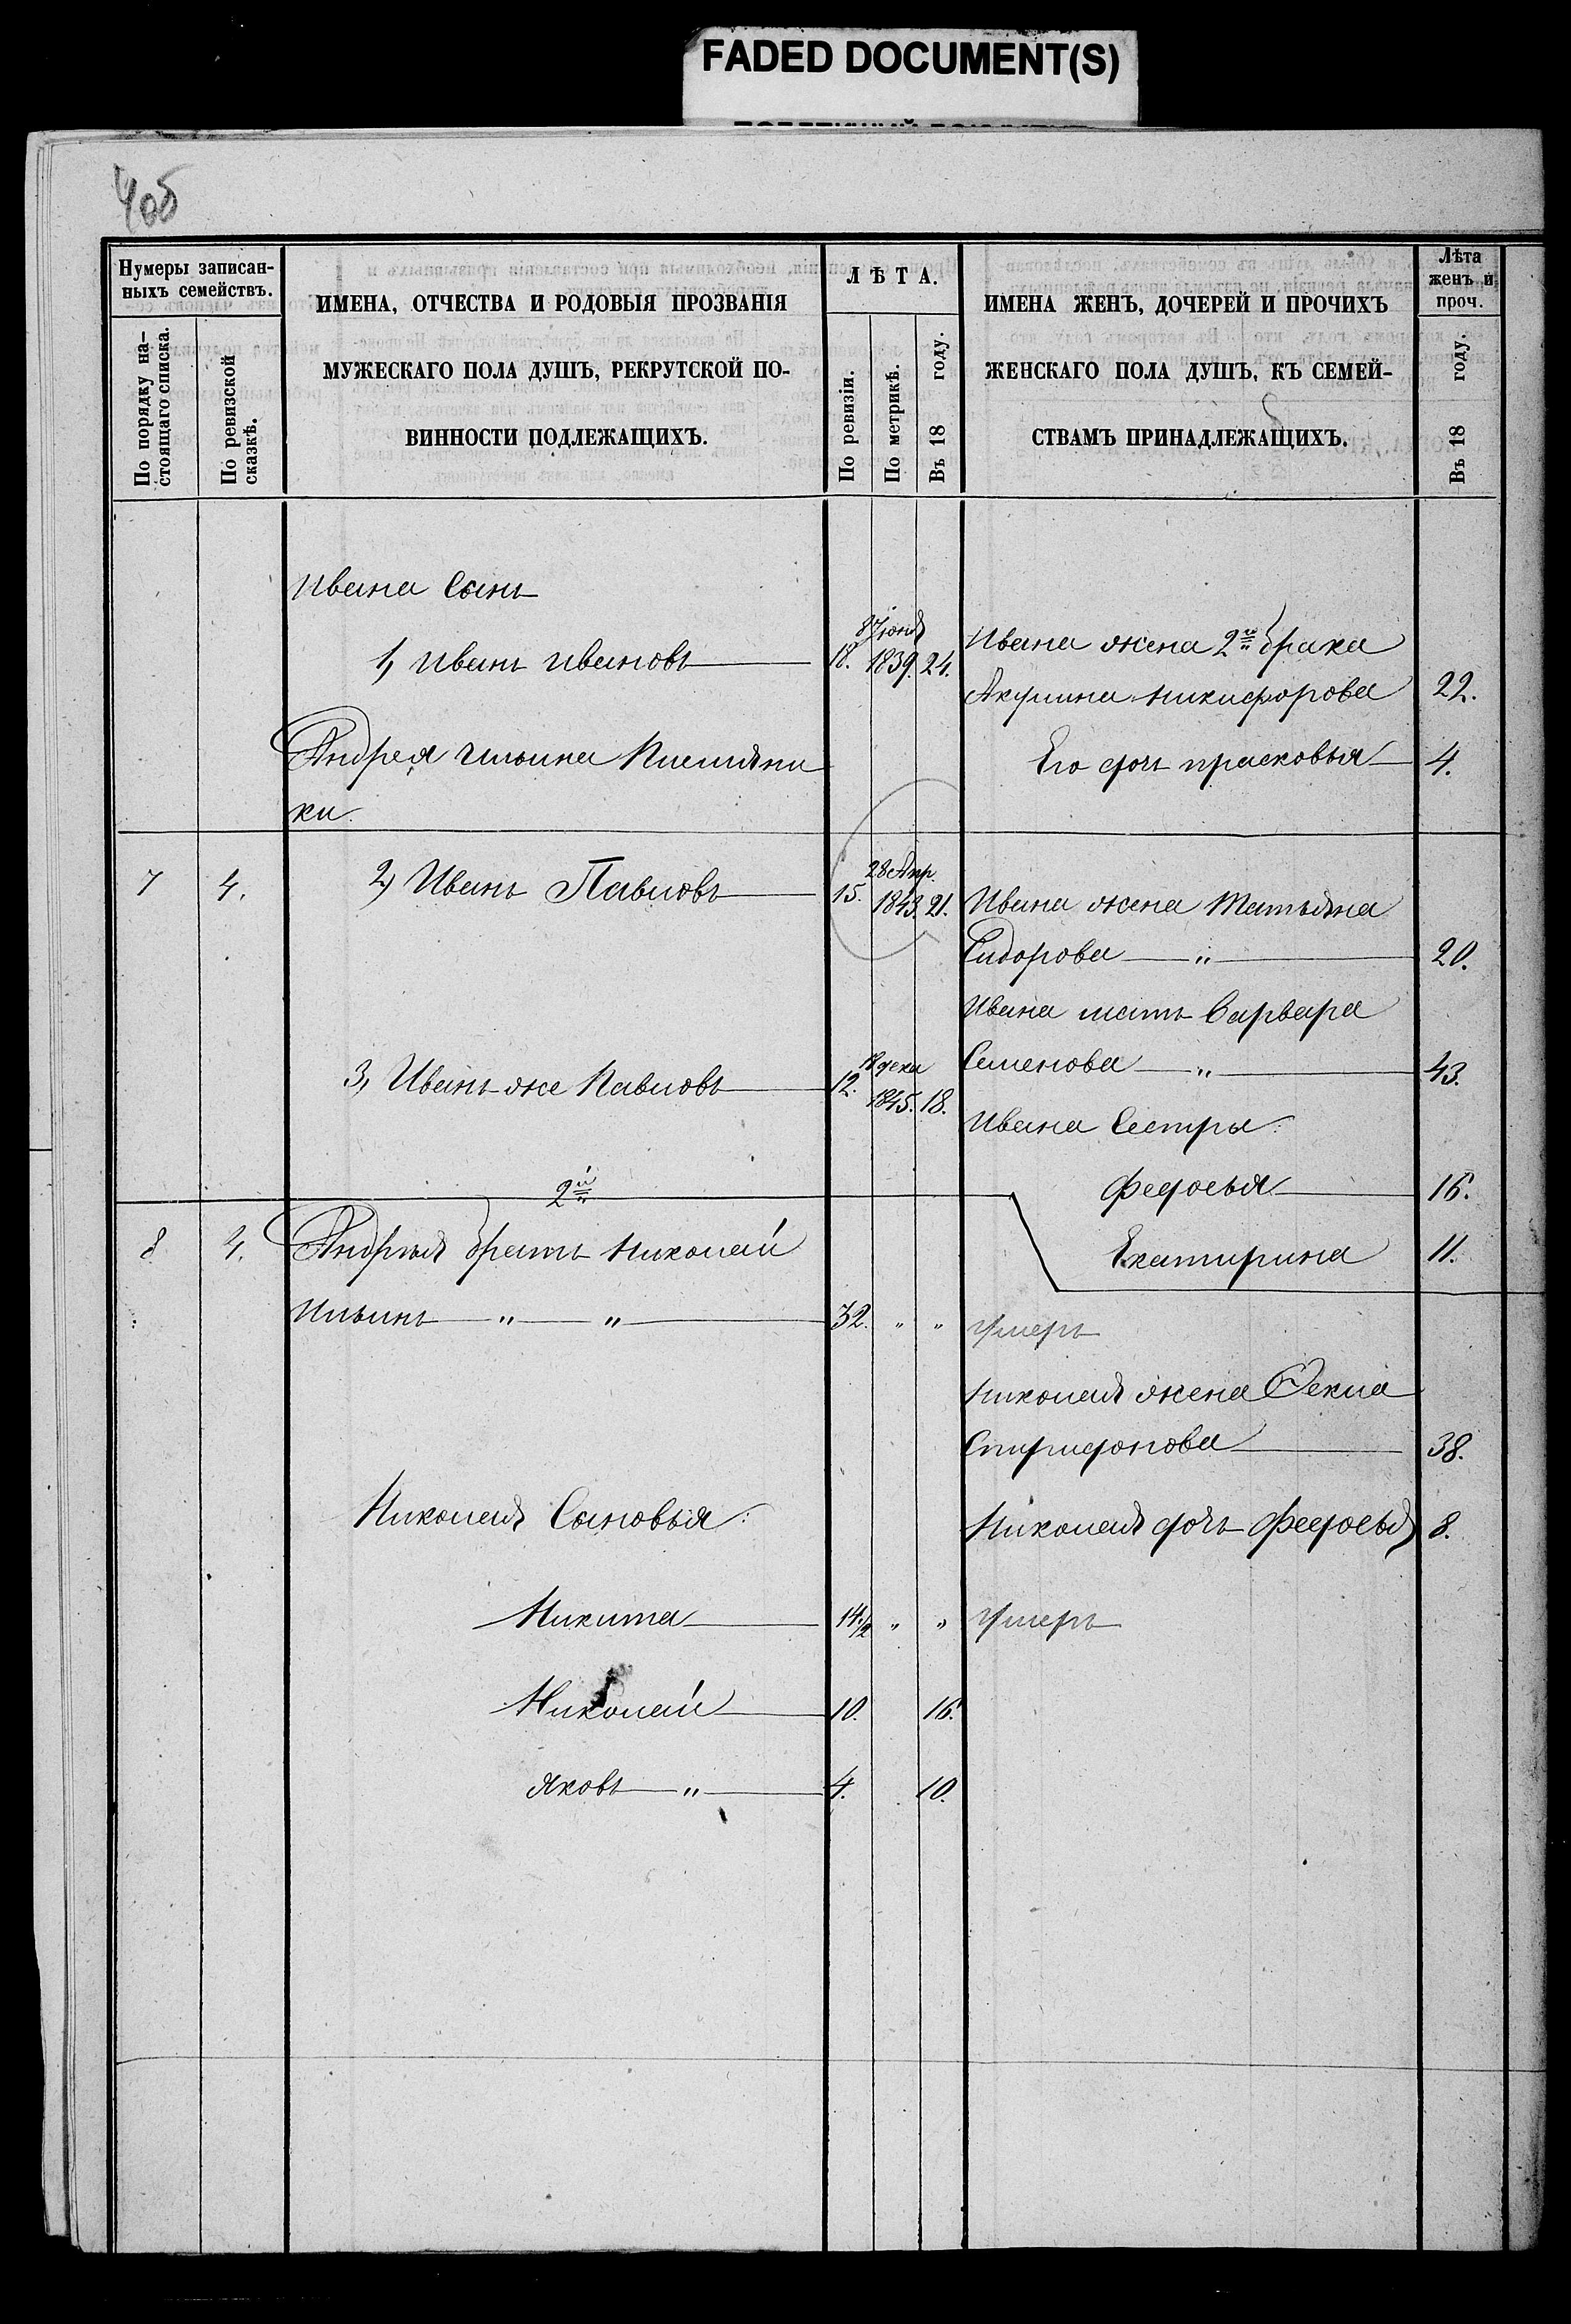 FADED DOCUMENT(S)
4об
Нумеры записан-
ныхъ семействъ.
По порядку на-
стоящаго списка.
По ревизской
сказкѣ.
ИМЕНА, ОТЧЕСТВА И РОДОВЫЯ ПРОЗВАНІЯ
МУЖЕСКАГО ПОЛА ДУШЪ, РЕКРУТСКОЙ ПО-
ВИННОСТИ ПОДЛЕЖАЩИХЪ.
ЛѢТА.
По ревизіи.
По метрикѣ.
Въ 18 году.
ИМЕНА ЖЕНЪ, ДОЧЕРЕЙ И ПРОЧИХЪ
ЖЕНСКАГО ПОЛА ДУШЪ, КЪ СЕМЕЙ-
СТВАМЪ ПРИНАДЛЕЖАЩИХЪ.
Лѣта
женъ и
проч.
Въ 18 году.
Ивана Сынъ
1, Иванъ Ивановъ 18. 8 Іюня 1839. 24.
Ивана жена 2й брака
Акулина Никифорова 22.
Его дочь Прасковья 4.
Андрея Ильина
ки.
7 4. 2, Иванъ Павловъ 15. 28 Апр. 1843. 21.
Ивана жена Матьяна
Сидорова " 20.
Ивана мать Варвара
Семенова " 43.
3, Иванъ же Павловъ 12. 18 дека 1845. 18.
Ивана Сестры:
Федосья 16.
Екатирина 11.
2й
8 4. Андрѣя братъ Николай
Ильинъ " " 32. " " умеръ
Николая жена Фекла
Спиридонова 38.
Николая Сыновья:
Николая дочь Федосья 8.
Никита 14 1/2 " " умеръ
Николай 10. 16.
Яковъ " 4. 10.